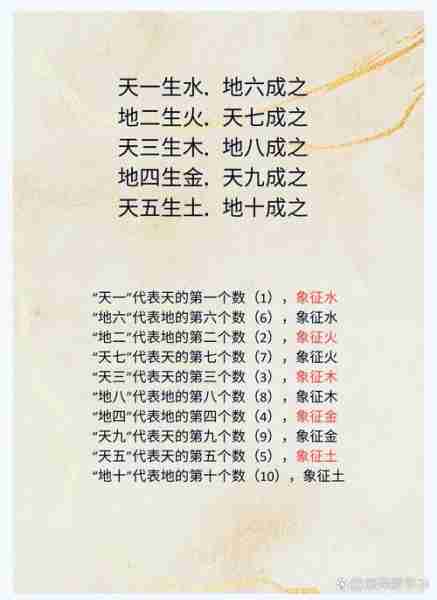 天一生水.地六成之
地二生火.天七成之
天三生木.地八成之
地四生金.天九成之
天五生土.地十成之
“天一”代表天的第一个数（1），象征水
“地六”代表地的第六个数（6），象征水
“地二”代表地的第二个数（2），象征火
“天七”代表天的第七个数（7），象征火
“天三”代表天的第三个数（3），象征木
“地八”代表地的第八个数（8），象征木
“地四”代表地的第四个数（4），象征金
“天九”代表天的第九个数（9），象征金
“天五”代表天的第五个数（5），象征土
“地十”代表地的第十个数（10），象征土